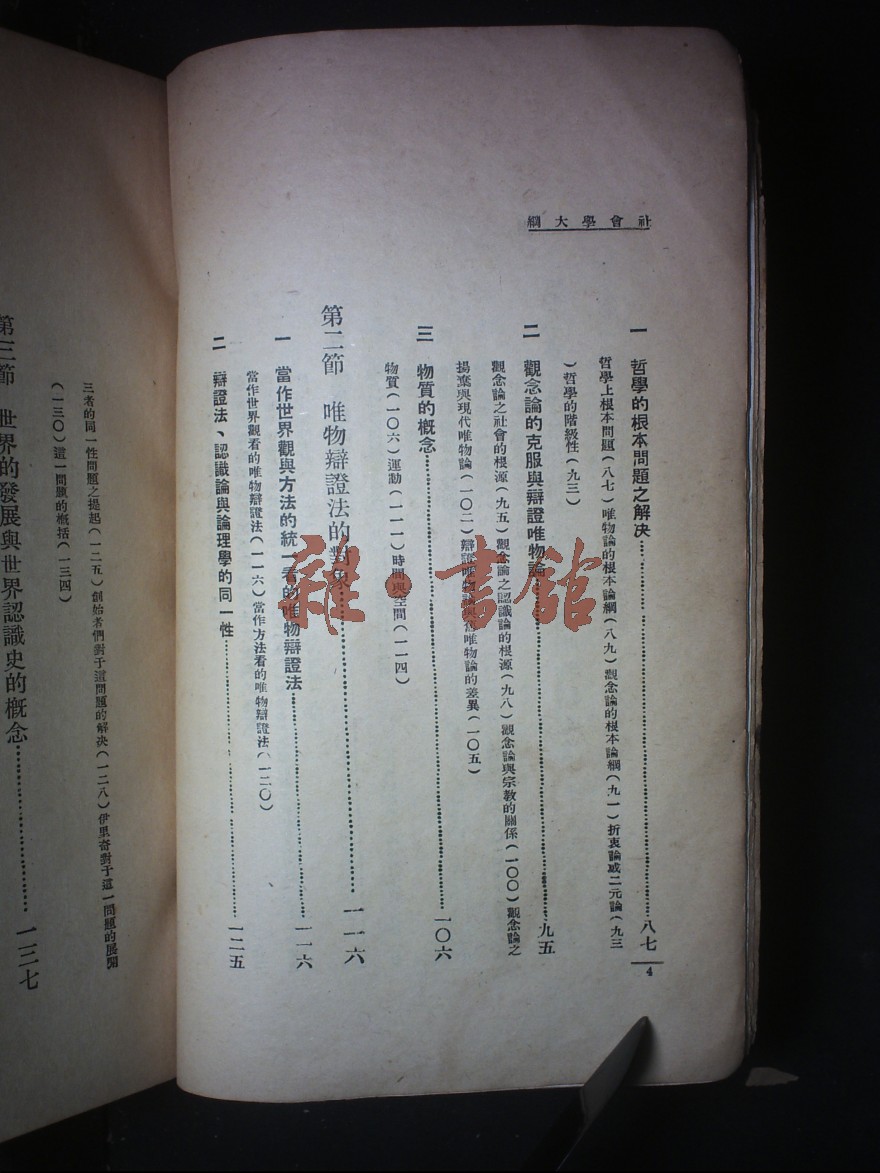 社會學大綱
一 哲學的根本問題之解决……八七
哲學上根本問題(八七)唯物論的根本論綱(八九)觀念論的根本論綱(九一)折衷論或二元論(九三
)哲學的階級性(九三)
二 觀念論的克服與辯證唯物論……九五
觀念論之社會的根源(九五)觀念論之認識論的根源(九八)觀念論與宗教的關係(一〇〇)觀念論之
揚棄與現代唯物論(一〇二)辯證唯物論與舊唯物論的差異(一〇五)
三 物質的概念……一〇六
物質(一〇六)運動(一一一)時間與空間(一一四)
第二節 唯物辯證法的對象……一一六
一 當作世界觀與方法的統一看的唯物辯證法……一一六
當作世界觀看的唯物辯證法(一一六)當作方法看的唯物辯證法(一二〇)
二 辯證法、認識論與論理學的同一性……一二五
4
三者的同一性問題之提起(一二五)創始者們對于這問題的解决(一二八)伊里奇對于這一問題的展開
(一三〇)這一問題的概括(一三四)
第三節 世界的發展與世界認識史的概念……一三七
雜·書館